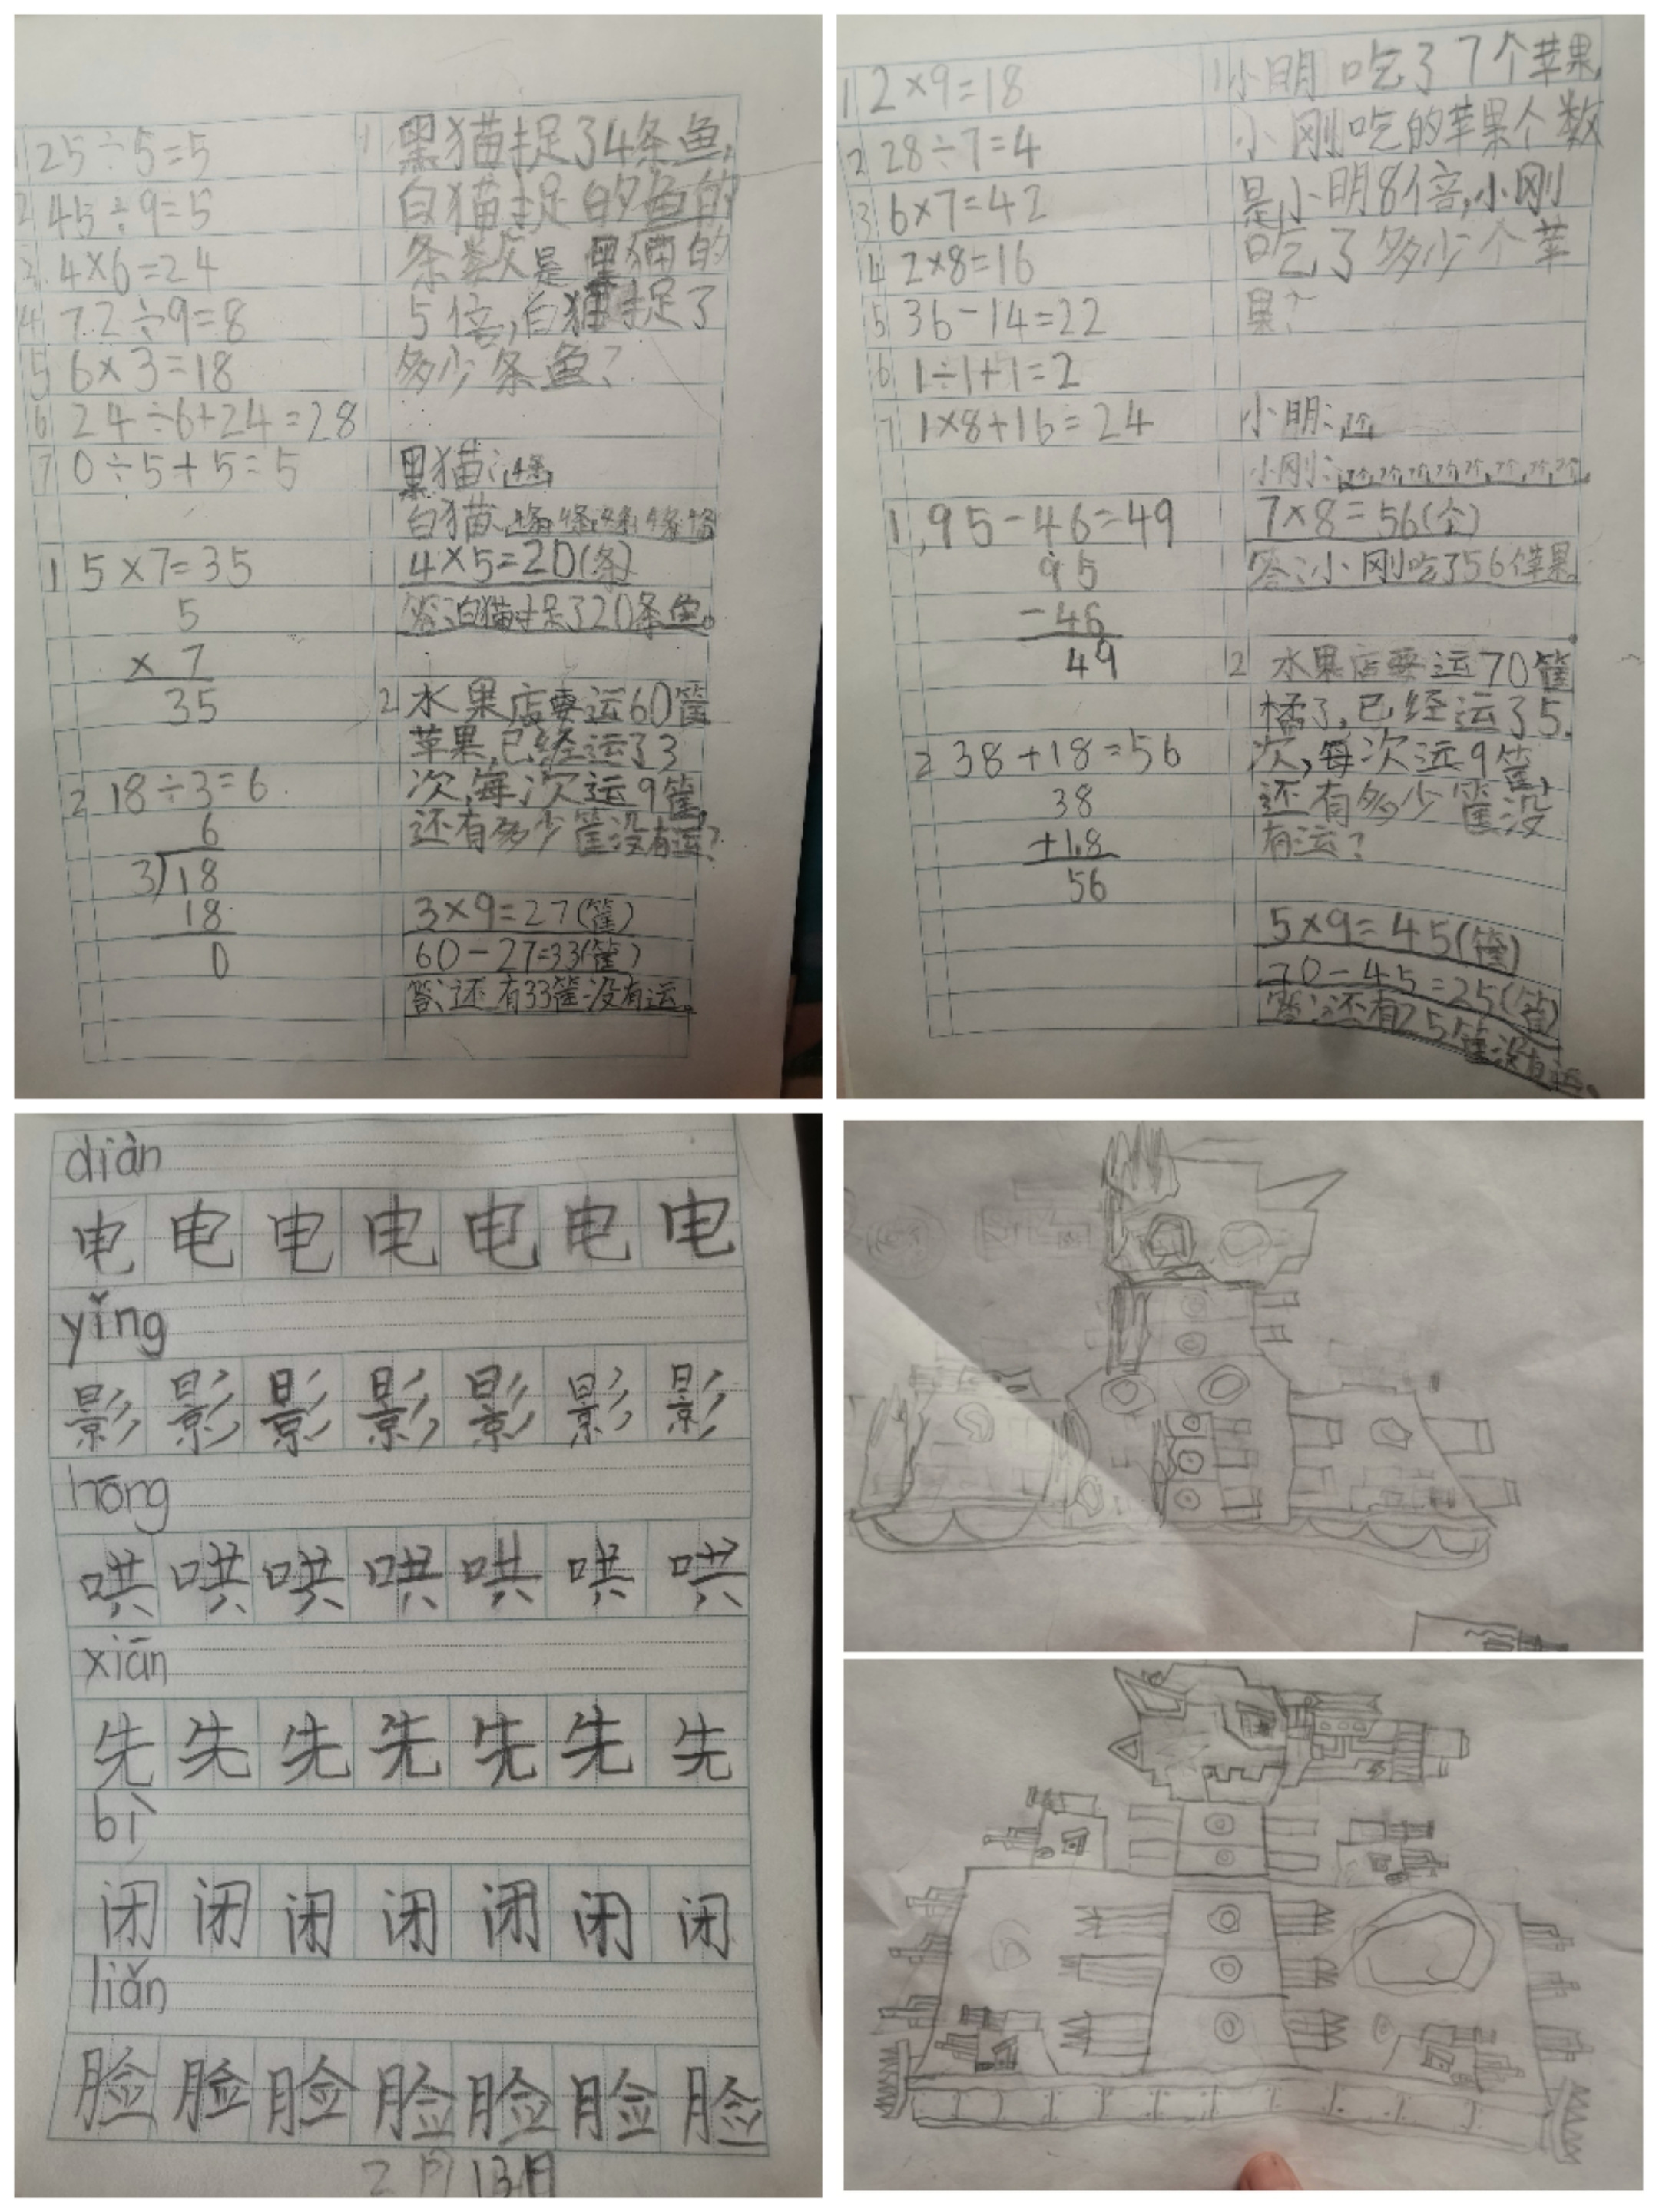 1 25÷5=5
2 45÷9=5
3. 4×6=24
4 72÷9=8
5 6×3=18
6 24÷6+24=28
7 0÷5+5=5
1 5×7=35
5
× 7
35
2 18÷3=6
6
3 18
18
0
1 黑猫捉了4条鱼,
白猫捉的鱼的
条数是黑猫的
5倍,白猫捉了
多少条鱼?
黑猫:4条
白猫:4条 4条 4条 4条 4条
4×5=20(条)
答:白猫捉了20条鱼。
2 水果店要运60筐
苹果,已经运了3
次,每次运9筐,
还有多少筐没有运?
3×9=27(筐)
60-27=33(筐)
答:还有33筐没有运。
1 2×9=18
2 28÷7=4
3 6×7=42
4 2×8=16
5 36-14=22
6 1÷1+1=2
7 1×8+16=24
1,95-46=49
95
-46
49
2 38+18=56
38
+18
56
1 小明吃了7个苹果,
小刚吃的苹果个数
是小明8倍,小刚
吃了多少个苹
果?
小明:7个
小刚:7个,7个,7个,7个,7个,7个,7个,7个
7×8=56(个)
答:小刚吃了56个苹果。
2 水果店要运70筐
橘了,已经运了5.
次,每次运9筐,
还有多少筐没
有运?
5×9=45(筐)
70-45=25(筐)
答:还有25筐没有运。
diàn
电 电 电 电 电 电 电
yǐng
影 影 影 影 影 影 影
hōng
哄 哄 哄 哄 哄 哄 哄
xiān
先 先 先 先 先 先 先
bì
闭 闭 闭 闭 闭 闭 闭
liǎn
脸 脸 脸 脸 脸 脸 脸
2月13日